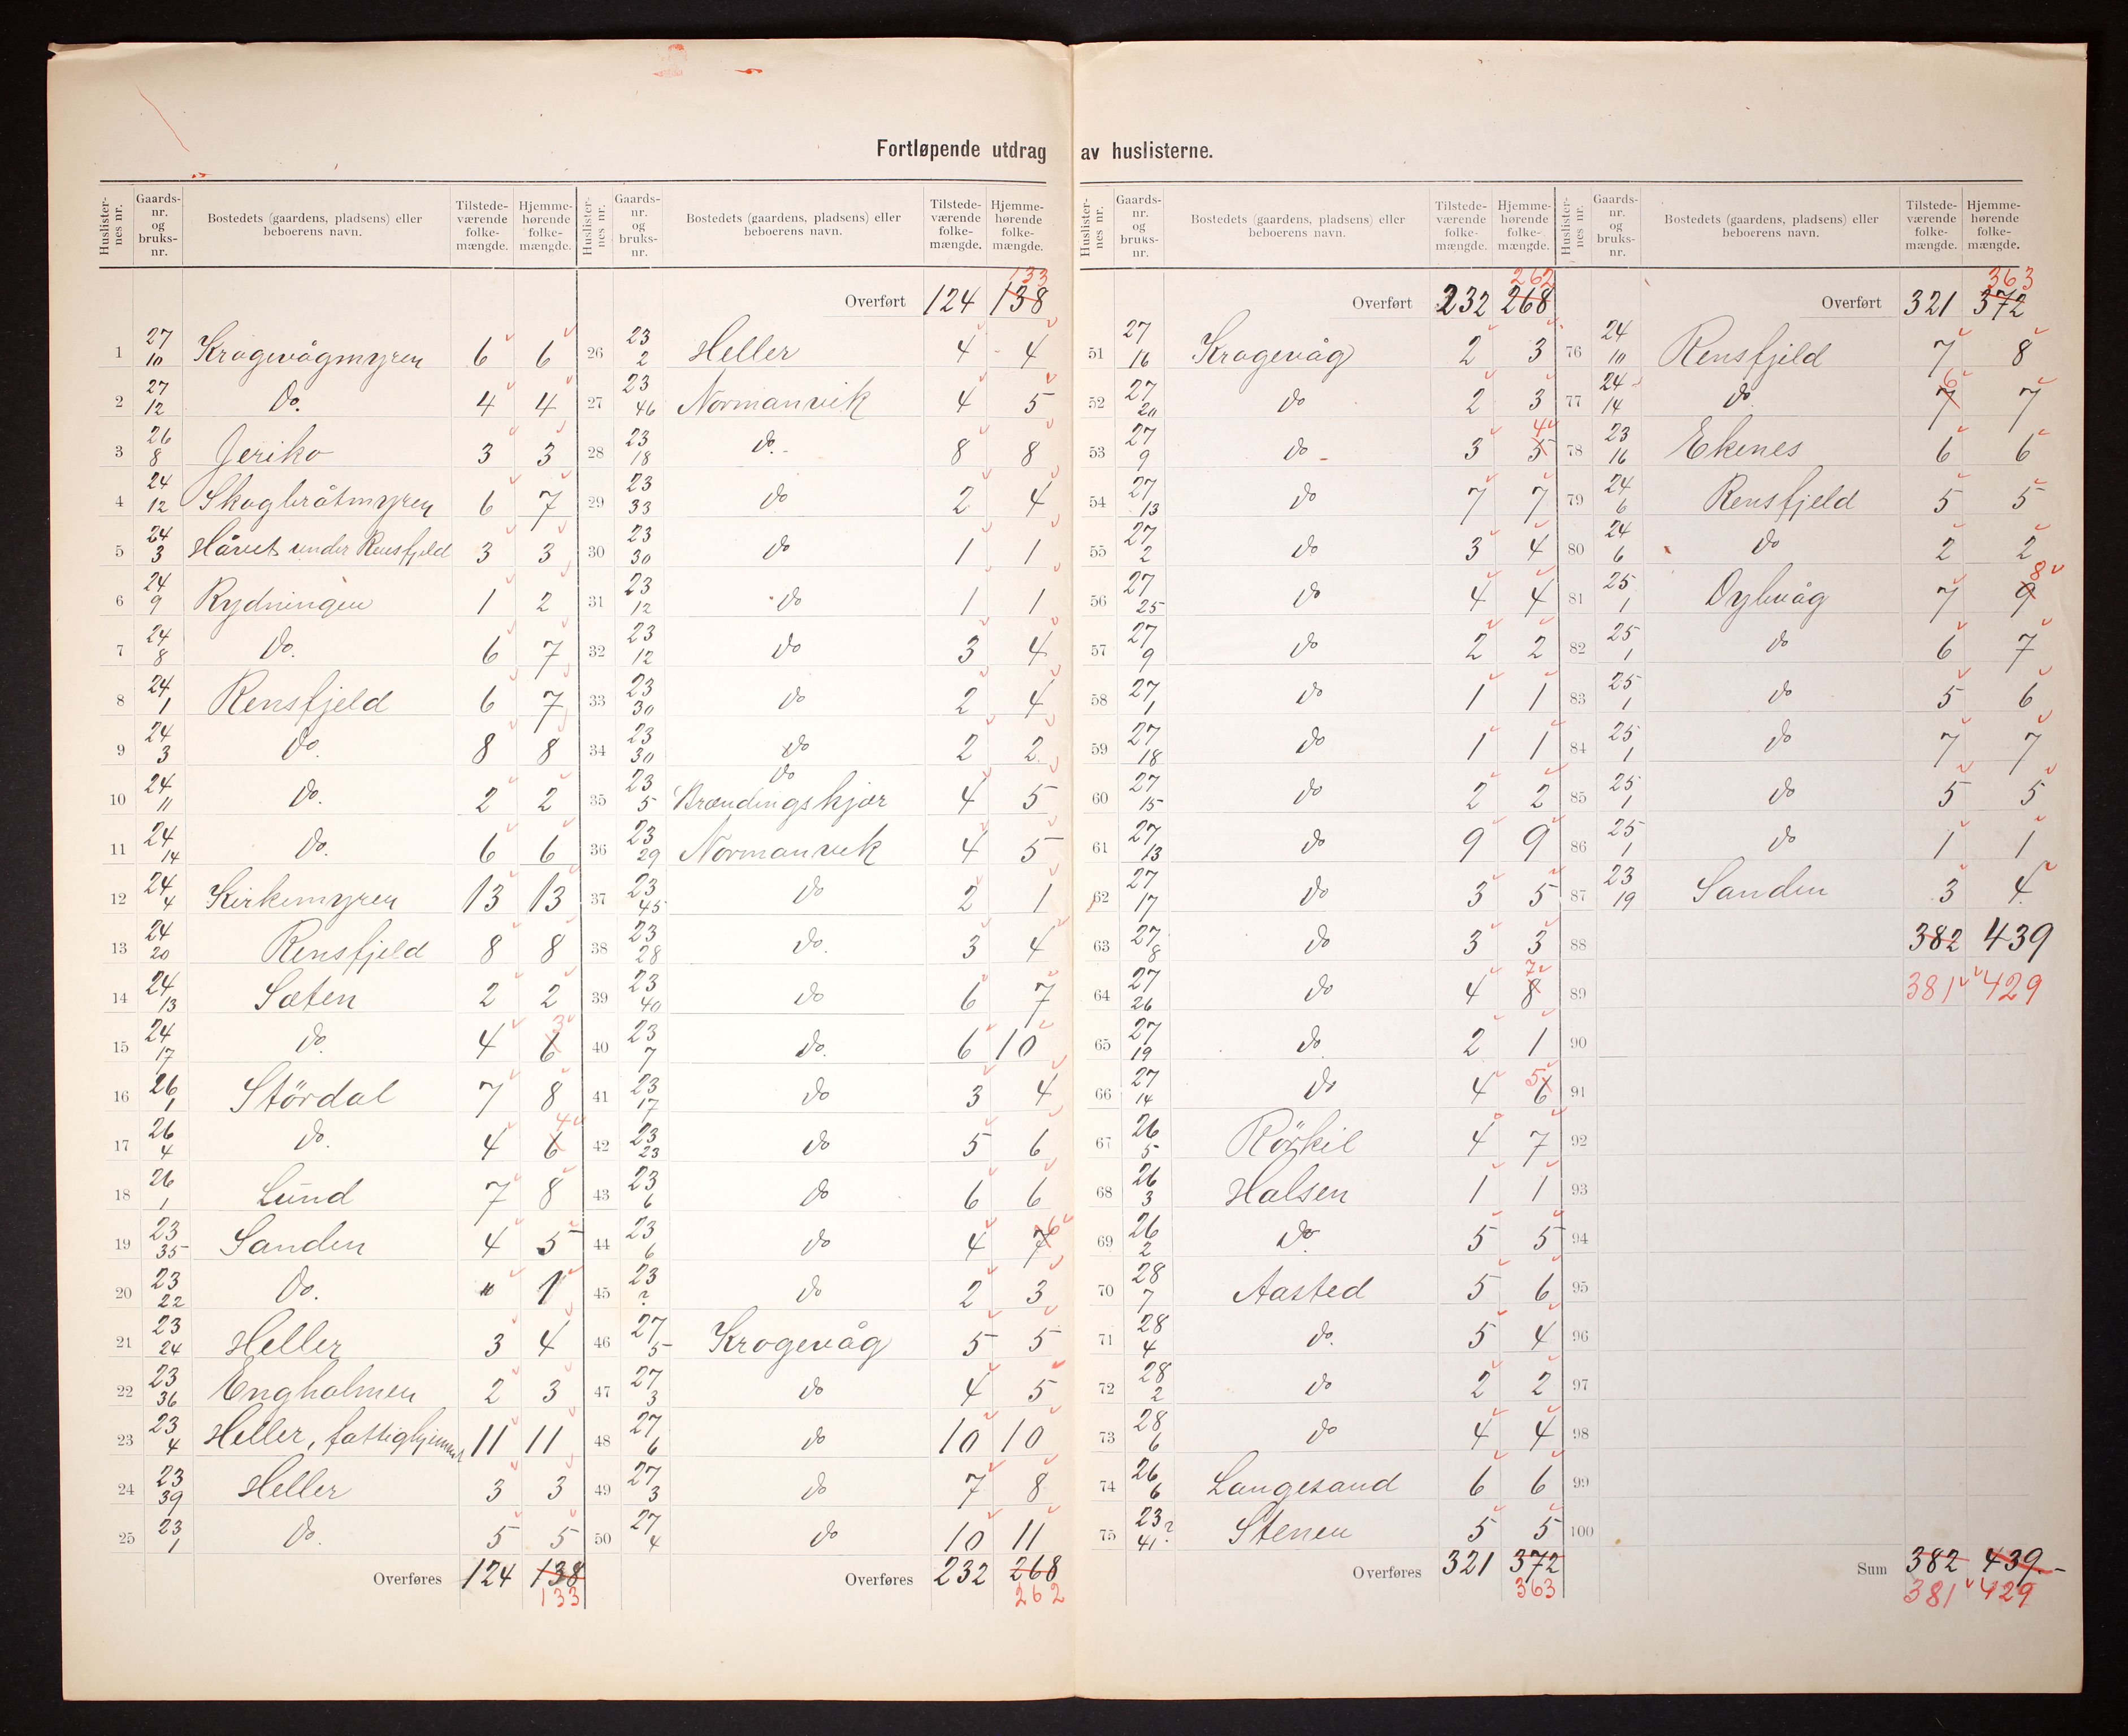 Fortløpende utdrag av huslisterne.
Huslisternes nr. Gaards-nr. og bruks-nr. Bostedets (gaardens, pladsens) eller beboerens navn. Tilstedeværende folkemængde. Hjemmehørende folkemængde.
1 27/10 Kragevågmyren 6 6
2 27/12 Do. 4 4
3 26/8 Jeriko 3 3
4 24/12 Skogbråtmyren 6 7
5 24/3 Håvet under Rensfjeld 3 3
6 24/9 Rydningen 1 2
7 24/8 Do. 6 7
8 24/1 Rensfjeld 6 7
9 24/3 Do. 8 8
10 24/11 Do. 2 2
11 24/14 Do. 6 6
12 24/4 Kirkemyren 13 13
13 24/20 Rensfjeld 8 8
14 24/13 Sæten 2 2
15 24/17 Do. 4 6 3
16 26/1 Stördal 7 8
17 26/4 Do. 4 6 4
18 26/1 Lund 7 8
19 23/35 Sanden 4 5
20 23/22 Do. " 1
21 23/24 Heller 3 4
22 23/36 Engholmen 2 3
23 23/4 Heller, fattighjemmet 11 11
24 23/39 Heller 3 3
25 23/1 Do. 5 5
Overføres 124 138
133
Huslisternes nr. Gaards-nr. og bruks-nr. Bostedets (gaardens, pladsens) eller beboerens navn. Tilstedeværende folkemængde. Hjemmehørende folkemængde.
133
Overført 124 138
26 23/2 Heller 4 4
27 23/46 Normanvik 4 5
28 23/18 do. 8 8
29 23/33 do 2 4
30 23/30 do 1 1
31 23/12 do 1 1
32 23/12 do 3 4
33 23/30 do 2 4
34 23/30 do 2 2
do
35 23/5 Brændingskjær 4 5
36 23/29 Normanvik 4 5
37 23/45 do 2 1
38 23/28 do. 3 4
39 23/40 do 6 7
40 23/7 do. 6 10
41 23/17 do 3 4
42 23/23 do 5 6
43 23/6 do 6 6
44 23/6 do 4 7 6
45 23/? do 2 3
46 27/5 Krogevåg 5 5
47 27/3 do 4 5
48 27/6 do 10 10
49 27/3 do 7 8
50 27/4 do 10 11
Overføres 232 268
262
Huslisternes nr. Gaards-nr. og bruks-nr. Bostedets (gaardens, pladsens) eller beboerens navn. Tilstedeværende folkemængde. Hjemmehørende folkemængde.
262
Overført 232 268
51 27/16 Kragevåg 2 3
52 27/20 do 2 3
53 27/9 do 3 5 4
54 27/13 do 7 7
55 27/2 do 3 4
56 27/25 do 4 4
57 27/9 do 2 2
58 27/1 do 1 1
59 27/18 do 1 1
60 27/15 do 2 2
61 27/13 do 9 9
62 27/17 do 3 5
63 27/8 do 3 3
64 27/26 do 4 8 7
65 27/19 do 2 1
66 27/14 do 4 6 5
67 26/5 Rörkil 4 7
68 26/3 Halsen 1 1
69 26/2 Do. 5 5
70 28/7 Aasted 5 6
71 28/4 do. 5 4
72 28/2 do 2 2
73 28/6 do 4 4
74 26/6 Langesand 6 6
75 23?/41 Stenen 5 5
Overføres 321 372
363
Huslisternes nr. Gaards-nr. og bruks-nr. Bostedets (gaardens, pladsens) eller beboerens navn. Tilstedeværende folkemængde. Hjemmehørende folkemængde.
363
Overført 321 372
76 24/10 Rensfjeld 7 8
77 24/14 do 7 6 7
78 23/16 Ekenes 6 6
79 24/6 Rensfjeld 5 5
80 24/6 do 2 2
81 25/1 Dybvåg 7 9 8
82 25/1 do 6 7
83 25/1 do 5 6
84 25/1 do 7 7
85 25/1 do 5 5
86 25/1 do 1 1
87 23/19 Sanden 3 4
88 382 439
89 381 429
90
91
92
93
94
95
96
97
98
99
100
Sum 382 439
381 429